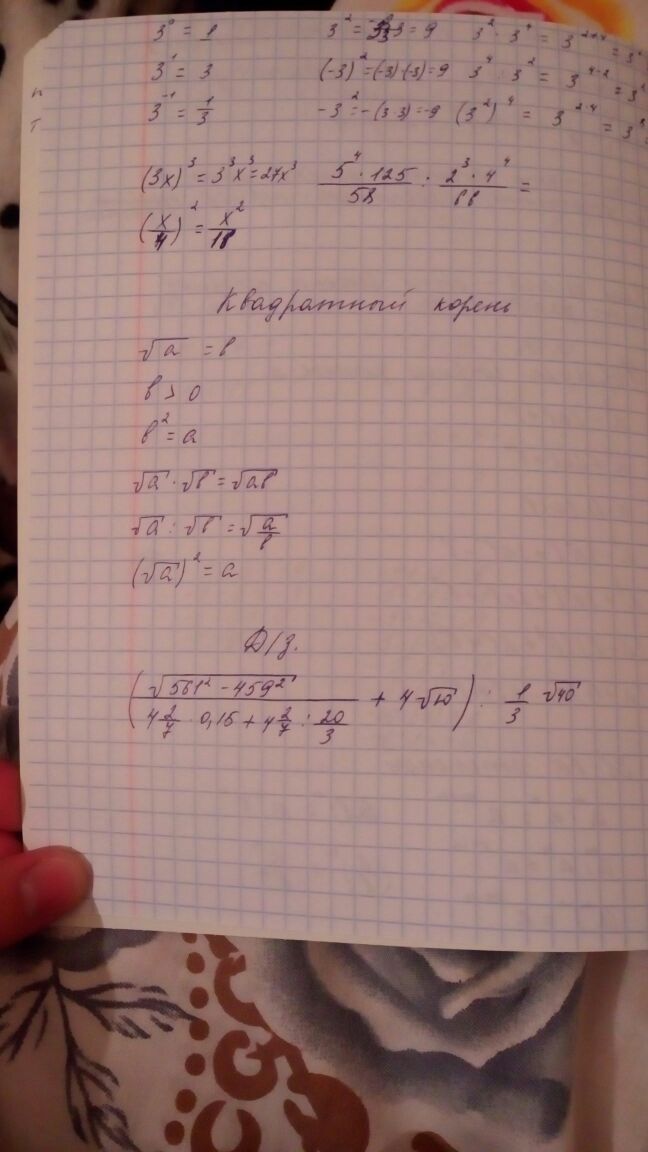 3⁰ = 1
3² = 3·3 = 9
3² · 3⁴ = 3²⁺⁴ = 3
3¹ = 3
(-3)² = (-3)·(-3) = 9
3⁴ : 3² = 3⁴⁻² = 3
3⁻¹ = 1/3
-3² = -(3·3) = -9
(3²)⁴ = 3²·⁴ = 3⁸ =
(3x)³ = 3³x³ = 27x³
(5⁴ · 125)/58 : (2³ · 4⁴)/
(x/4)² = x²/18
Квадратный корень
√a = b
b > 0
b² = a
√a · √b = √ab
√a : √b = √(a/b)
(√a)² = a
Д/з.
(√(561² - 459²)/(4 2/7 · 0,15 + 4 2/7 : 20/3) + 4√10) : 1/3 √40